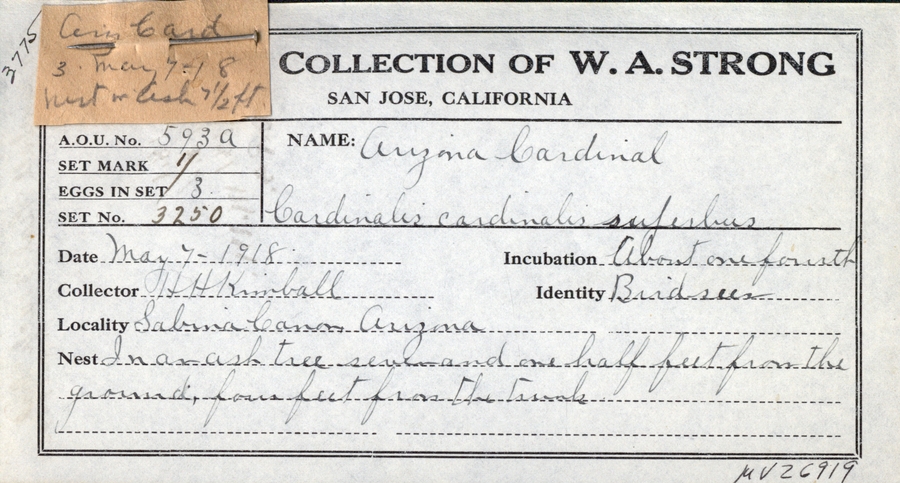 3775
Ariz Card
3. May 7-18
nest in ash 7 1/2 ft.
COLLECTION OF W. A. STRONG
SAN JOSE, CALIFORNIA
A.O.U. No. 593a
SET MARK 1/
EGGS IN SET 3.
SET No. 3250
NAME: Arizona Cardinal
Cardinalis cardinalis superbus
Date May 7-1918.
Incubation About one fourth
Collector H H Kimball
Identity Bird seen
Locality Sabina Canon Arizona
Nest In an ash tree seven and one half feet from the
ground, four feet from the trunk
MVZ6919